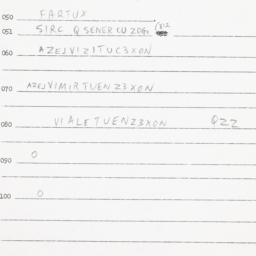 050 FARTUX
051 SIRC QSENER CU ZOG
060 AZEJVIZITUC3XON
070 AZEJVIMIRTUENZ3XON
080 VIALETUENZ3XON QZZ
090 0
100 0